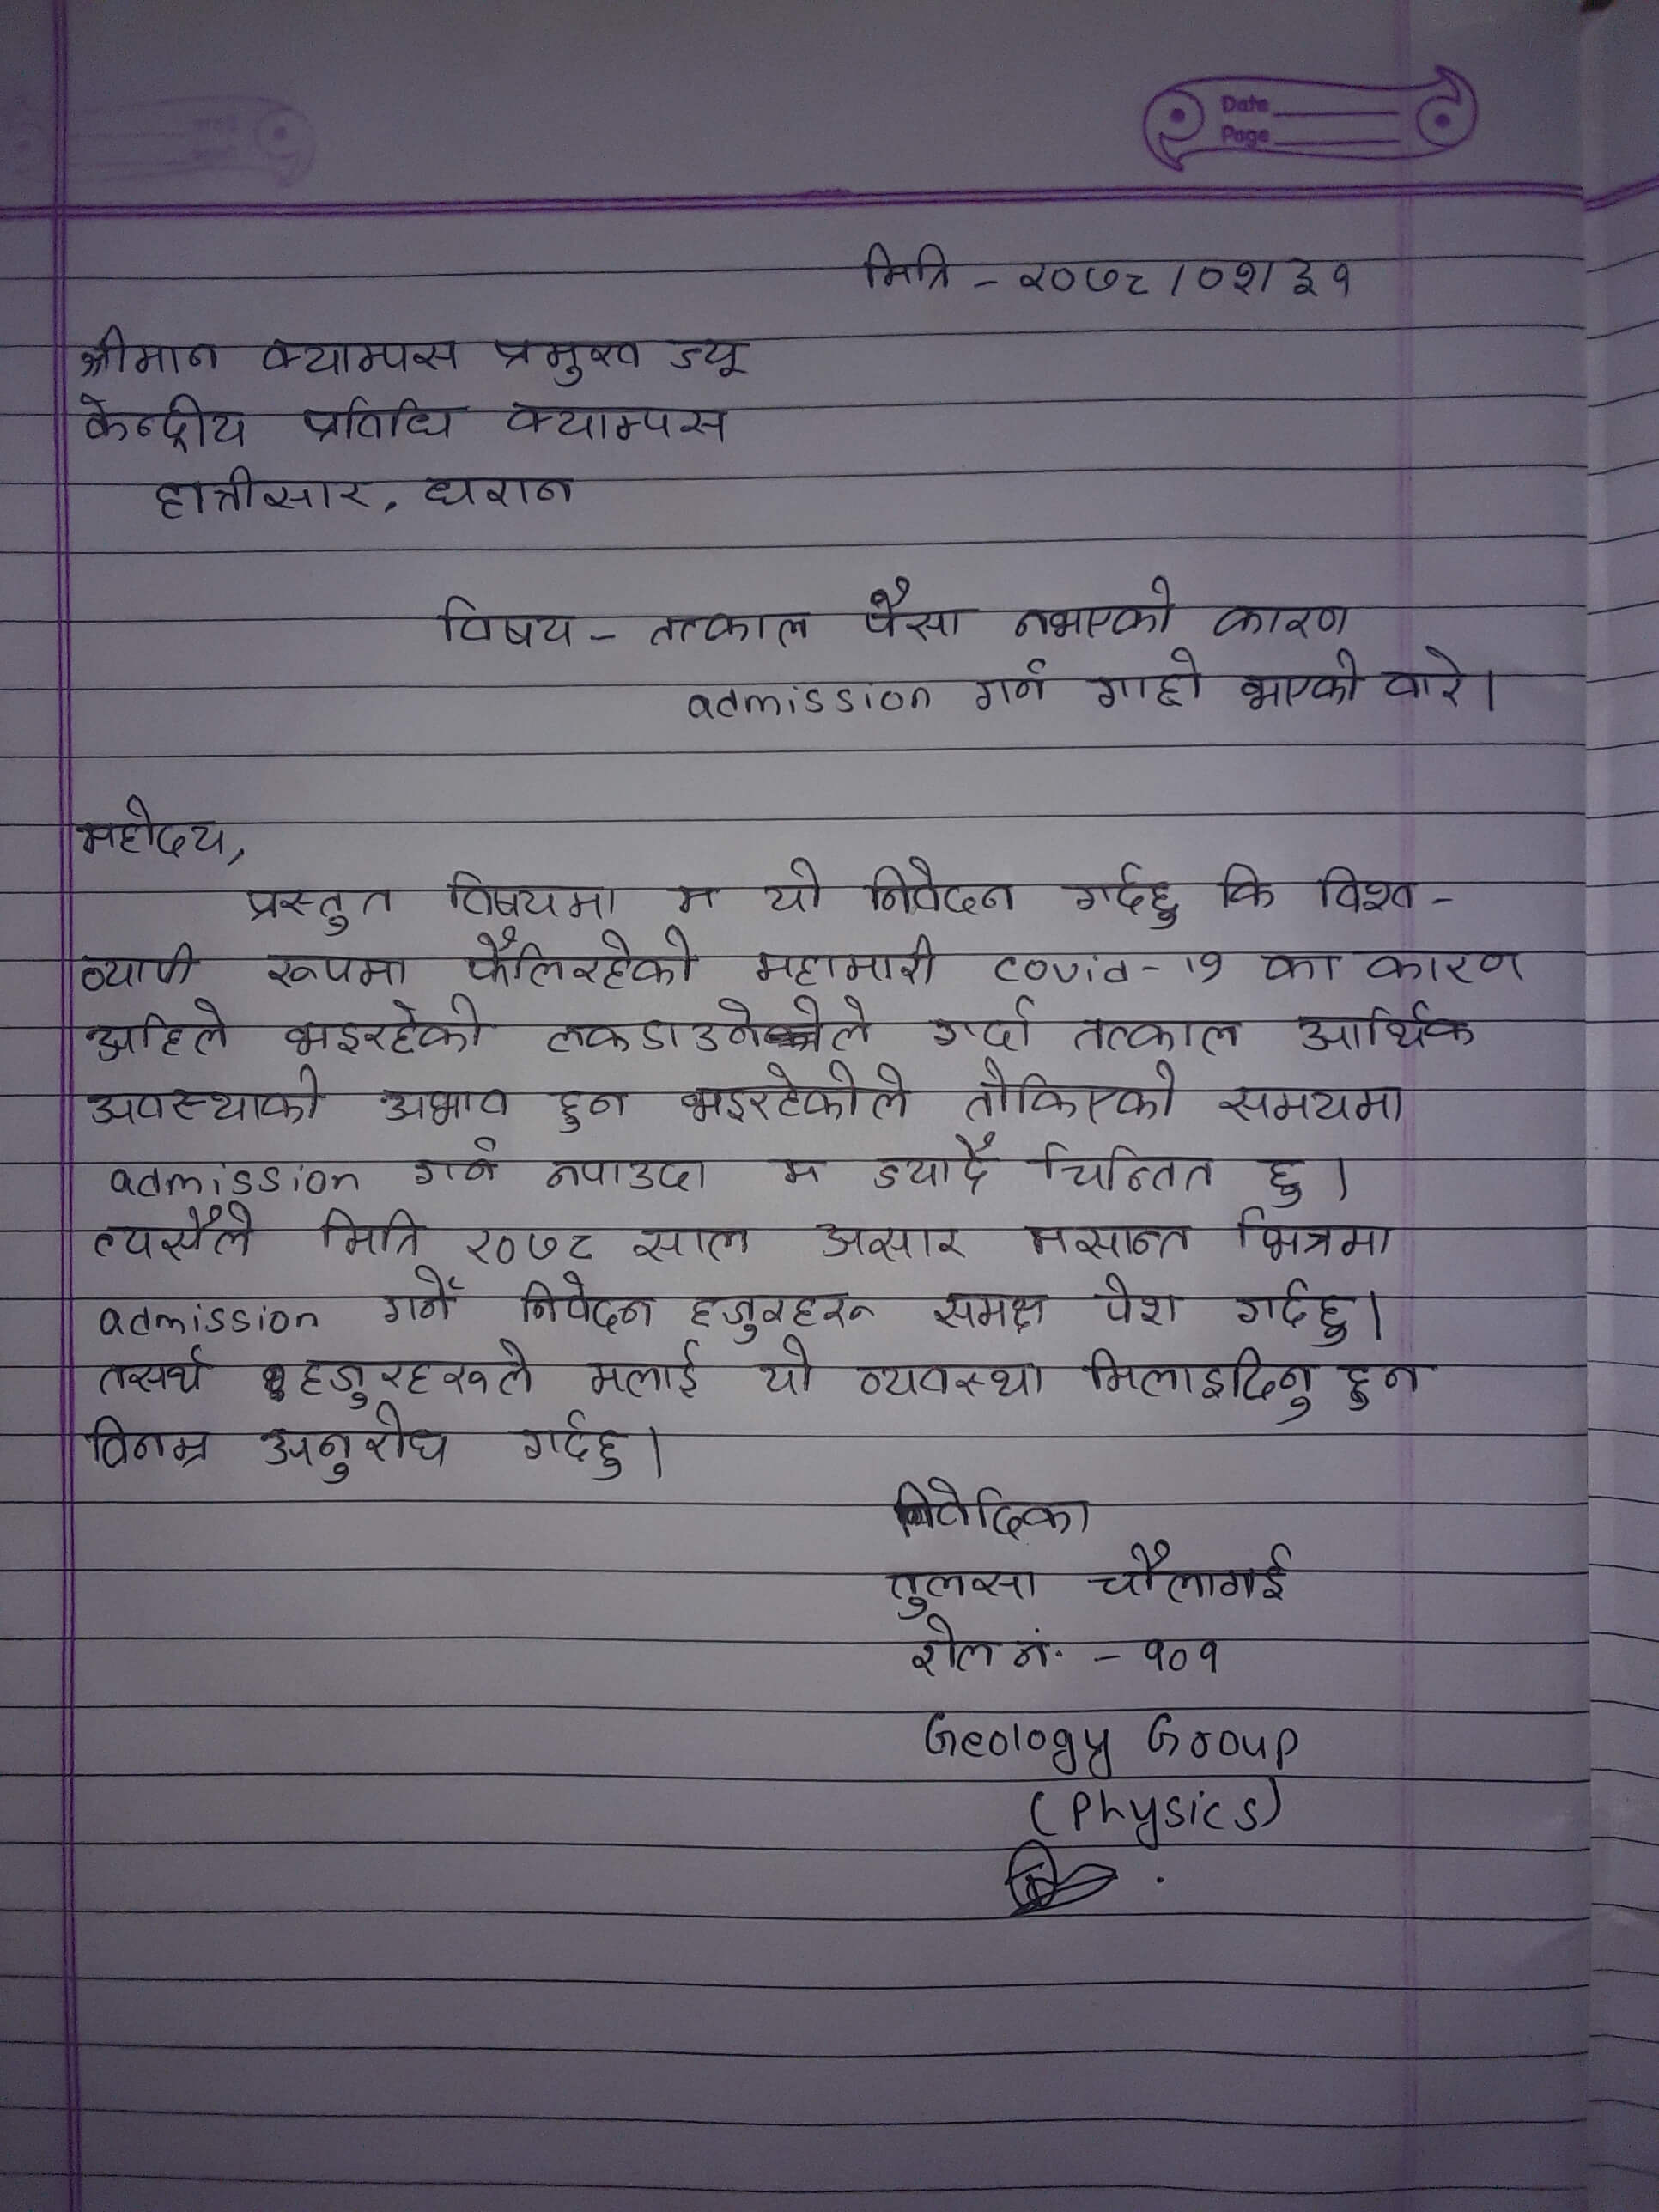 Date
Page
मिति - २०७८/०२/३१
श्रीमान क्याम्पस प्रमुख ज्यू
केन्द्रीय प्रविधि क्याम्पस
हात्तीसार, धरान
विषय - तत्काल पैसा नभएको कारण
admission गर्न गाह्रो भएको बारे।
महोदय,
प्रस्तुत विषयमा म यो निवेदन गर्दछु कि विश्व-
व्यापी रूपमा फैलिरहेको महामारी covid-19 का कारण
अहिले भइरहेको लकडाउनेले गर्दा तत्काल आर्थिक
अवस्थाको अभाव हुन भइरहेकोले तोकिएको समयमा
admission गर्न नपाउदा म ज्यादै चिन्तित छु।
त्यसैले मिति २०७८ साल असार मसान्त भित्रमा
admission गर्ने निवेदन हजुरहरू समक्ष पेश गर्दछु।
तसर्थ हजुरहरूले मलाई यो व्यवस्था मिलाइदिनु हुन
विनम्र अनुरोध गर्दछु।
निवेदिका
तुलसा चौलागाई
रोल नं. - १०१
Geology Group
(Physics)